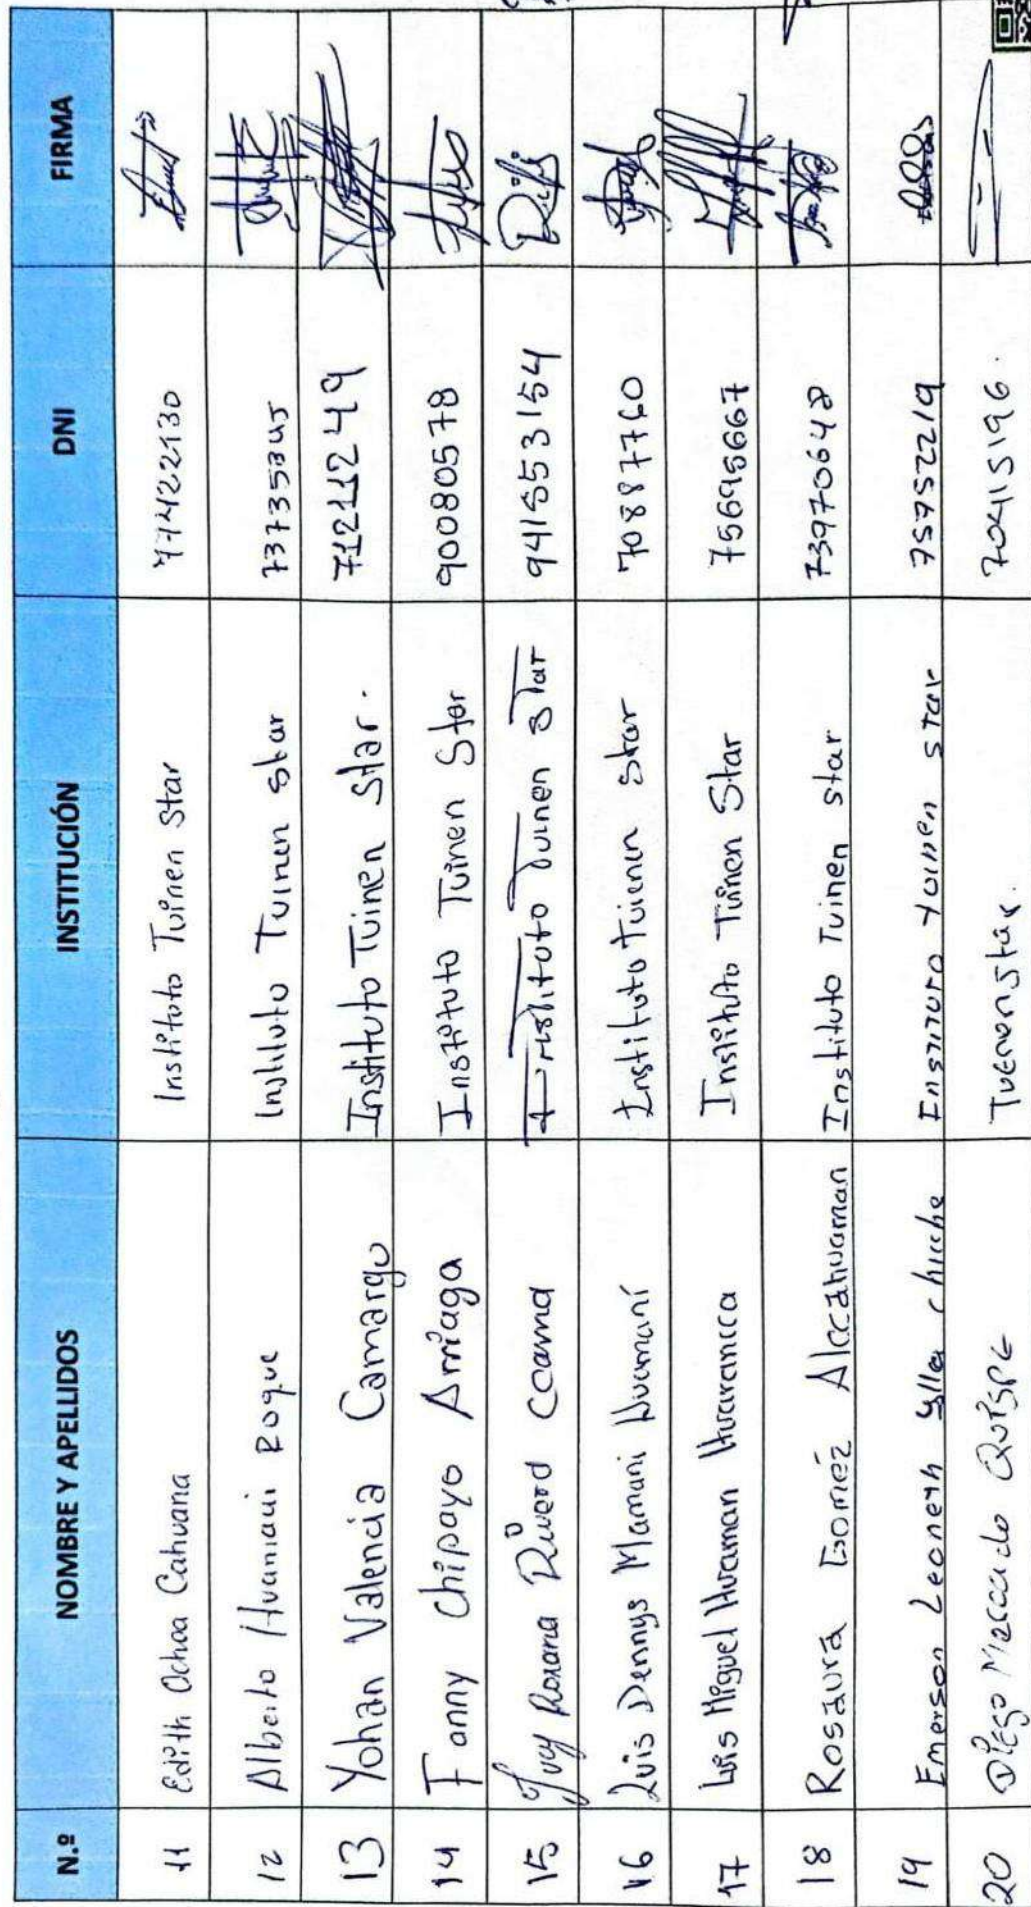 N.º NOMBRE Y APELLIDOS INSTITUCIÓN DNI FIRMA
11 Edith Ochoa Cahuana Instituto Tuinen Star 77422130
12 Alberto Huamani Roque Instituto Tuinen star
13 Yohan Valencia Camargo Instituto Tuinen Star. 71211249
14 Fanny Chipayo Arriaga Instituto Tuinen Star 90080578
15 Roxana Rivera Ccama Instituto Tuinen Star 941553154
16 Luis Dennys Mamani Huamaní Instituto Tuienen star 70887760
17 Luis Miguel Huaman Huaranca Instituto Tuinen Star 75695667
18 Rosaura Gomez Alccahuaman Instituto Tuinen star 73970648
19 Emerson Leoneth Ylla Instituto tuinen star 75752219
20 Diego Mercado Quispe 70415196.